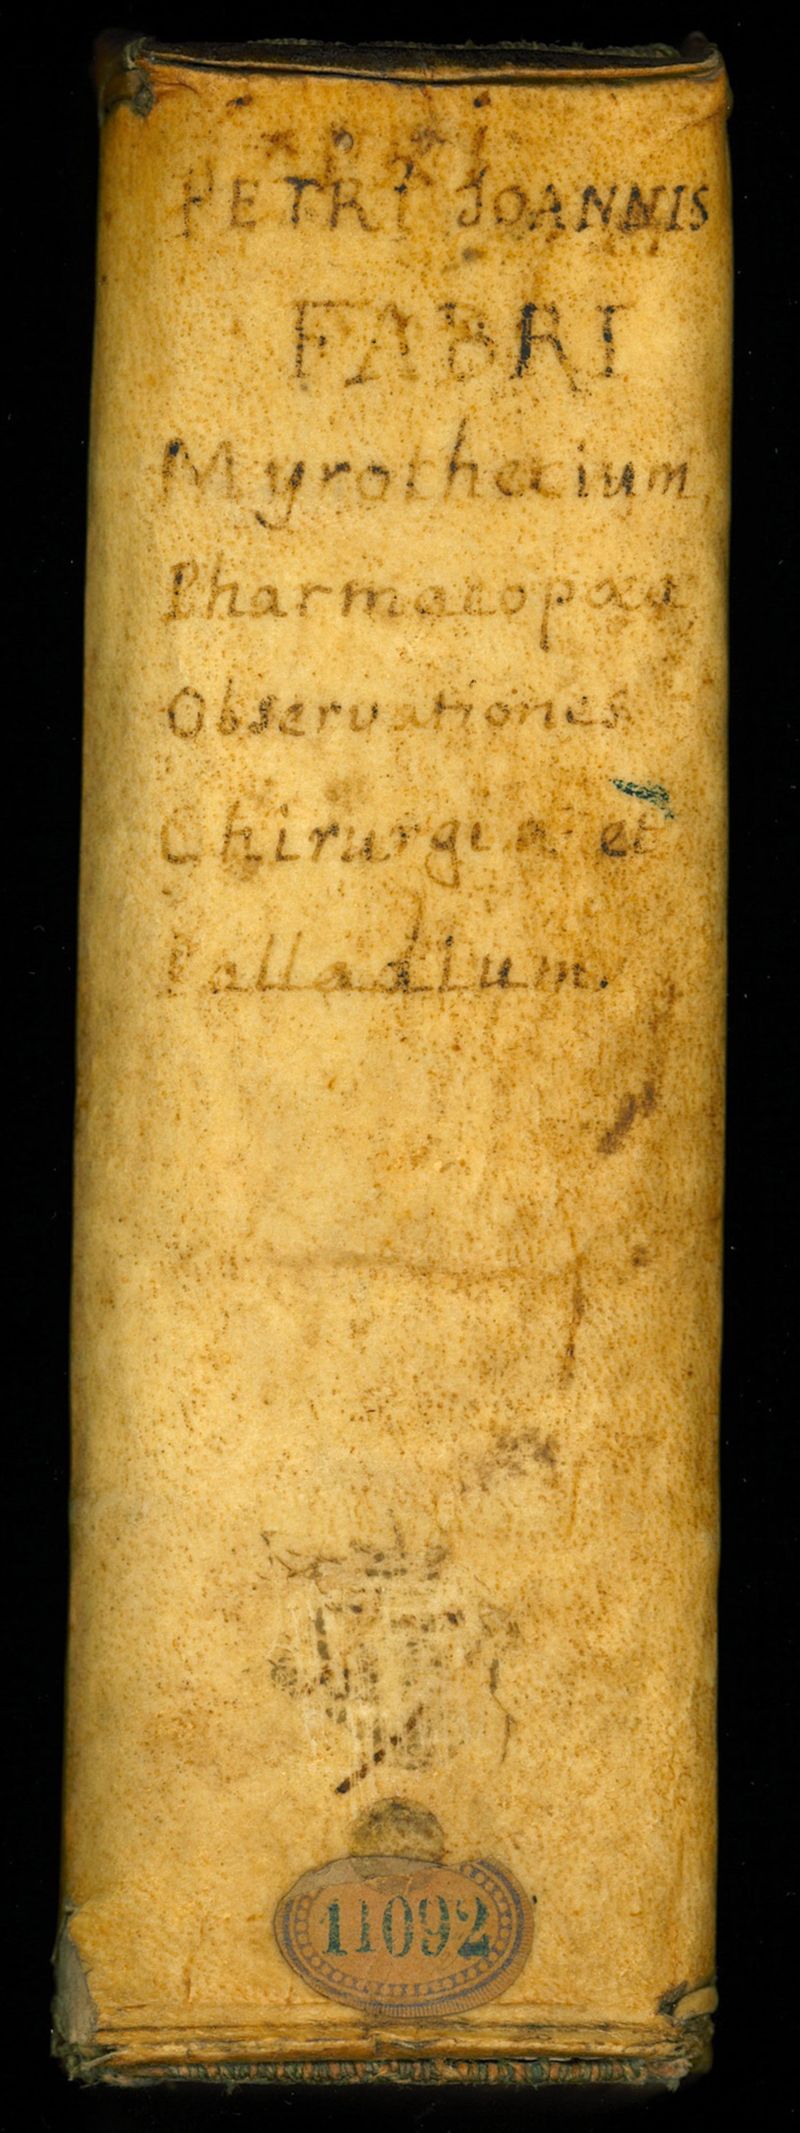 PETRI JOANNIS
FABRI
Myrothecium,
Pharmacopœa
Observationes
Chirurgia et
Palladium.
11092